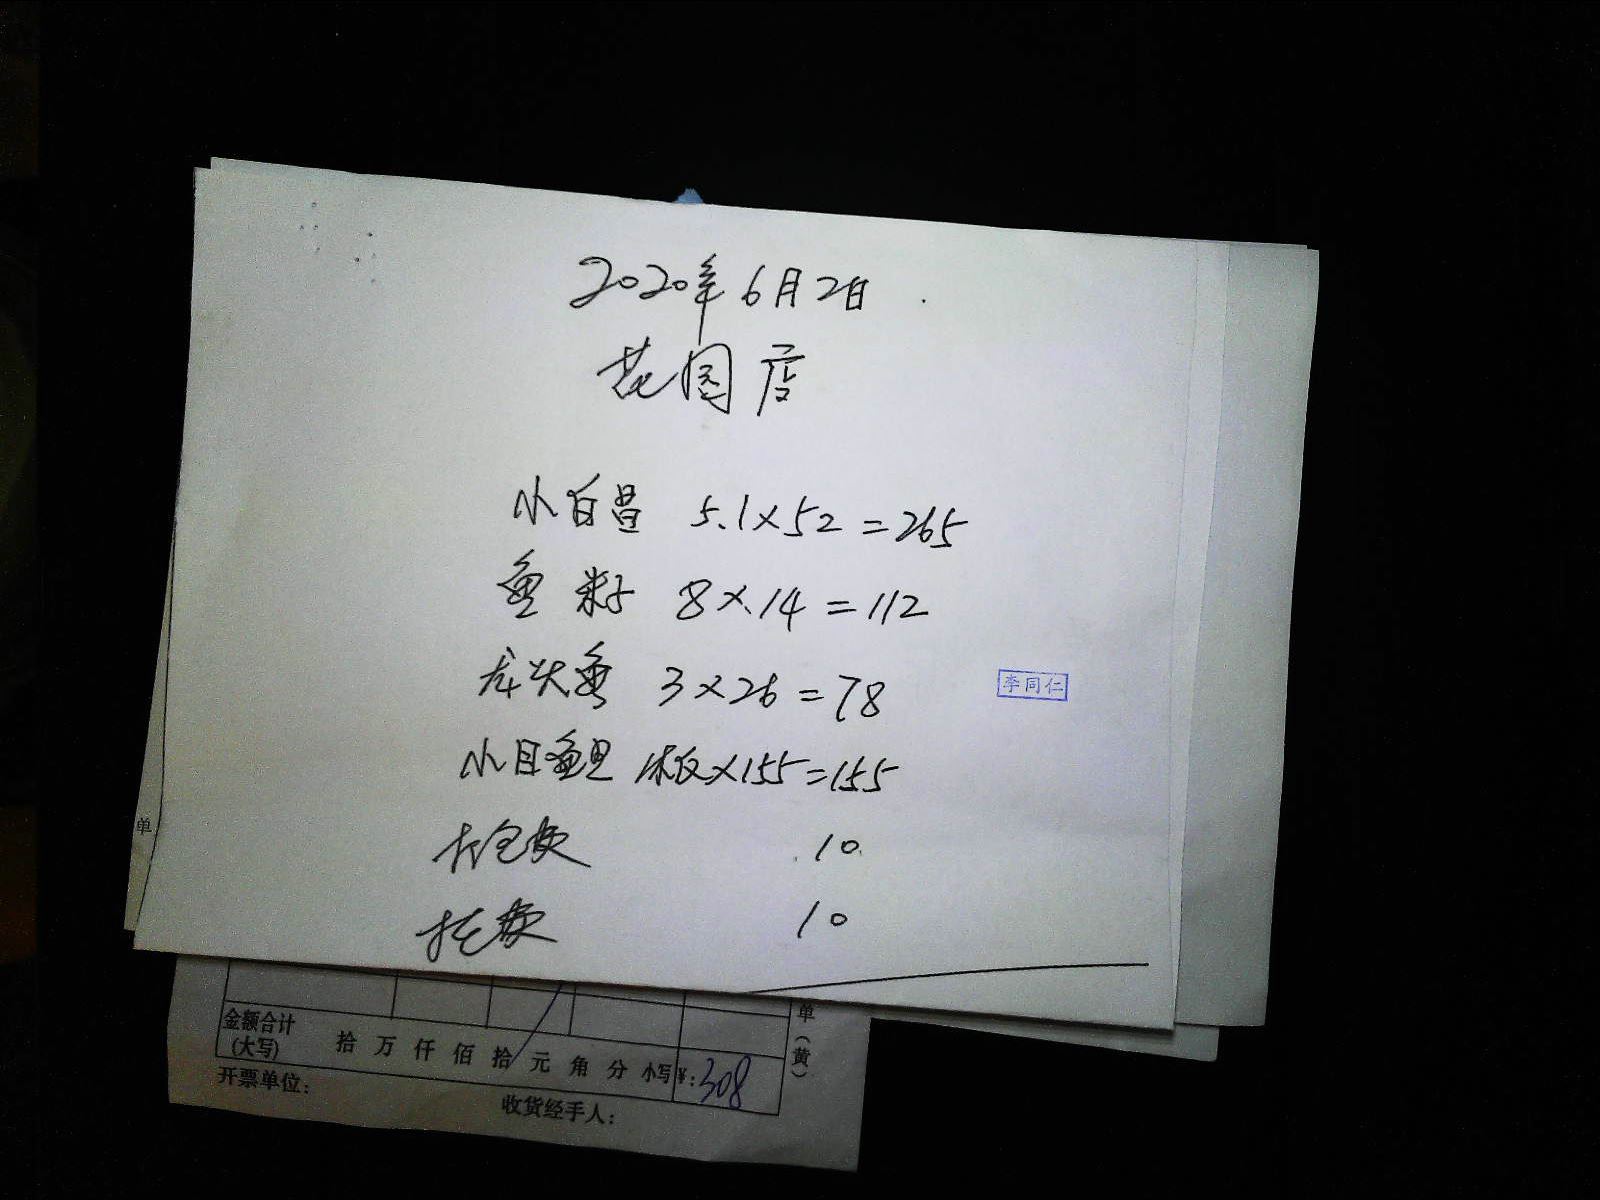 2020年6月2日
花园店
小白昌 5.1×52=265
鱼籽 8×14=112
龙头鱼 3×26=78
李同仁
小目鱼 1板×155=155
单
打包费 10
托费 10
单(黄)
金额合计
(大写)
拾 万 仟 佰 拾 元 角 分 小写¥: 308
开票单位:
收货经手人: